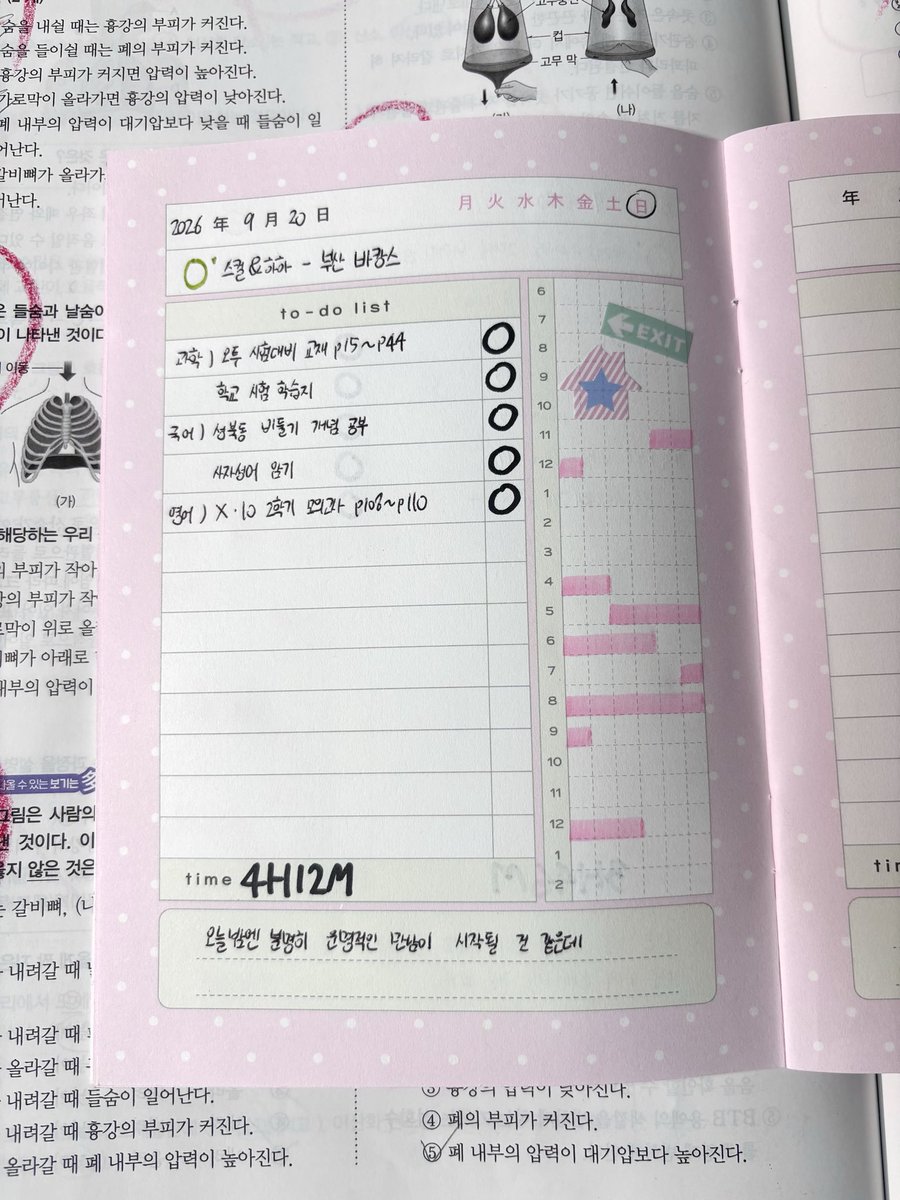 숨을 내쉴 때는 흉강의 부피가 커진다.
숨을 들이쉴 때는 폐의 부피가 커진다.
흉강의 부피가 커지면 압력이 높아진다.
가로막이 올라가면 흉강의 압력이 낮아진다.
폐 내부의 압력이 대기압보다 낮을 때 들숨이 일
어난다.
갈비뼈가 올라가
어난다.
은 들숨과 날숨이
이 나타낸 것이다
이동
(가)
해당하는 우리
의 부피가 작아
강의 부피가 작
로막이 위로 올
비뼈가 아래로
내부의 압력이
나올 수 있는 보기는
그림은 사람의
낸 것이다. 이
옳지 않은 것은
는 갈비뼈, (나
내려갈 때
내려갈 때
올라갈 때
내려갈 때 들숨이 일어난다.
내려갈 때 흉강의 부피가 커진다.
올라갈 때 폐 내부의 압력이 높아진다.
컵
고무 막
(나)
2026 年 9 月 20 日
月 火 水 木 金 土 日
스컬&하하 - 부산 바캉스
to-do list
과학) 오투 시험대비 교재 p15~p44
학교 시험 학습지
국어) 성북동 비둘기 개념 공부
사자성어 암기
영어) X·10 2학기 모의고사 p108~p110
6
7
8
9
10
11
12
1
2
3
4
5
6
7
8
9
10
11
12
1
2
EXIT
time 4H12M
오늘밤엔 분명히 운명적인 만남이 시작될 것 같은데
年
③ 흉강의 압력이 낮아진다.
④ 폐의 부피가 커진다.
⑤ 폐 내부의 압력이 대기압보다 높아진다.